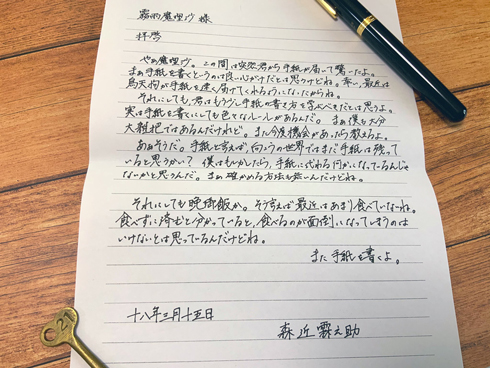 霧雨魔理沙 様
拝啓
やあ魔理沙。この間は突然君から手紙が届いて驚いたよ。
まあ手紙を書くというのは良い心がけだとは思うけどね。幸い、最近は
烏天狗が手紙を速く届けてくれるようになったからね。
それにしても、君はもう少し手紙の書き方を学ぶべきだとは思うよ。
実は手紙を書くにしても色々なルールがあるんだ。まあ僕も大分
大雑把ではあるんだけれど。また今度機会があったら教えるよ。
ああそうだ。手紙と言えば、向こうの世界ではまだ手紙は残って
いると思うかい？ 僕はもしかしたら、手紙に代わる何かになっているんじゃ
ないかと思うんだ。まあ確かめる方法も無いんだけどね。
それにしても晩御飯か。そう言えば最近はあまり食べていないね。
食べずに済むと分かっていると、食べるのが面倒になってしまうのは
いけないとは思っているんだけどね。
また手紙を書くよ。
十八年三月十五日
森近霖之助
C21